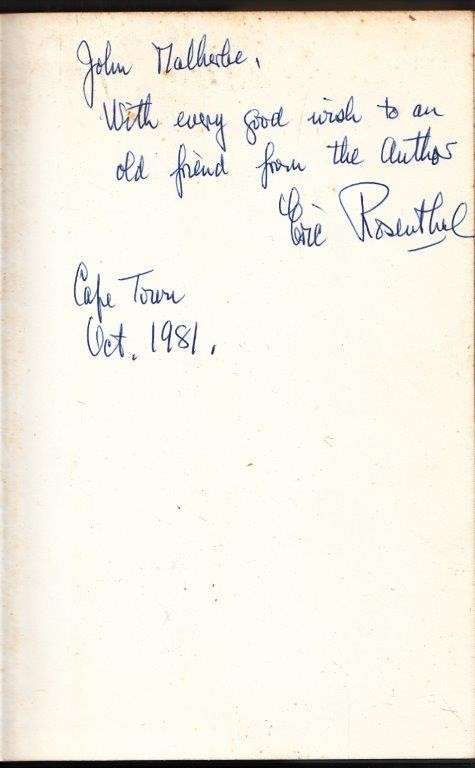 John Malherbe.
With every good wish to an
old friend from the Author
Eric Rosenthal
Cape Town
Oct. 1981.